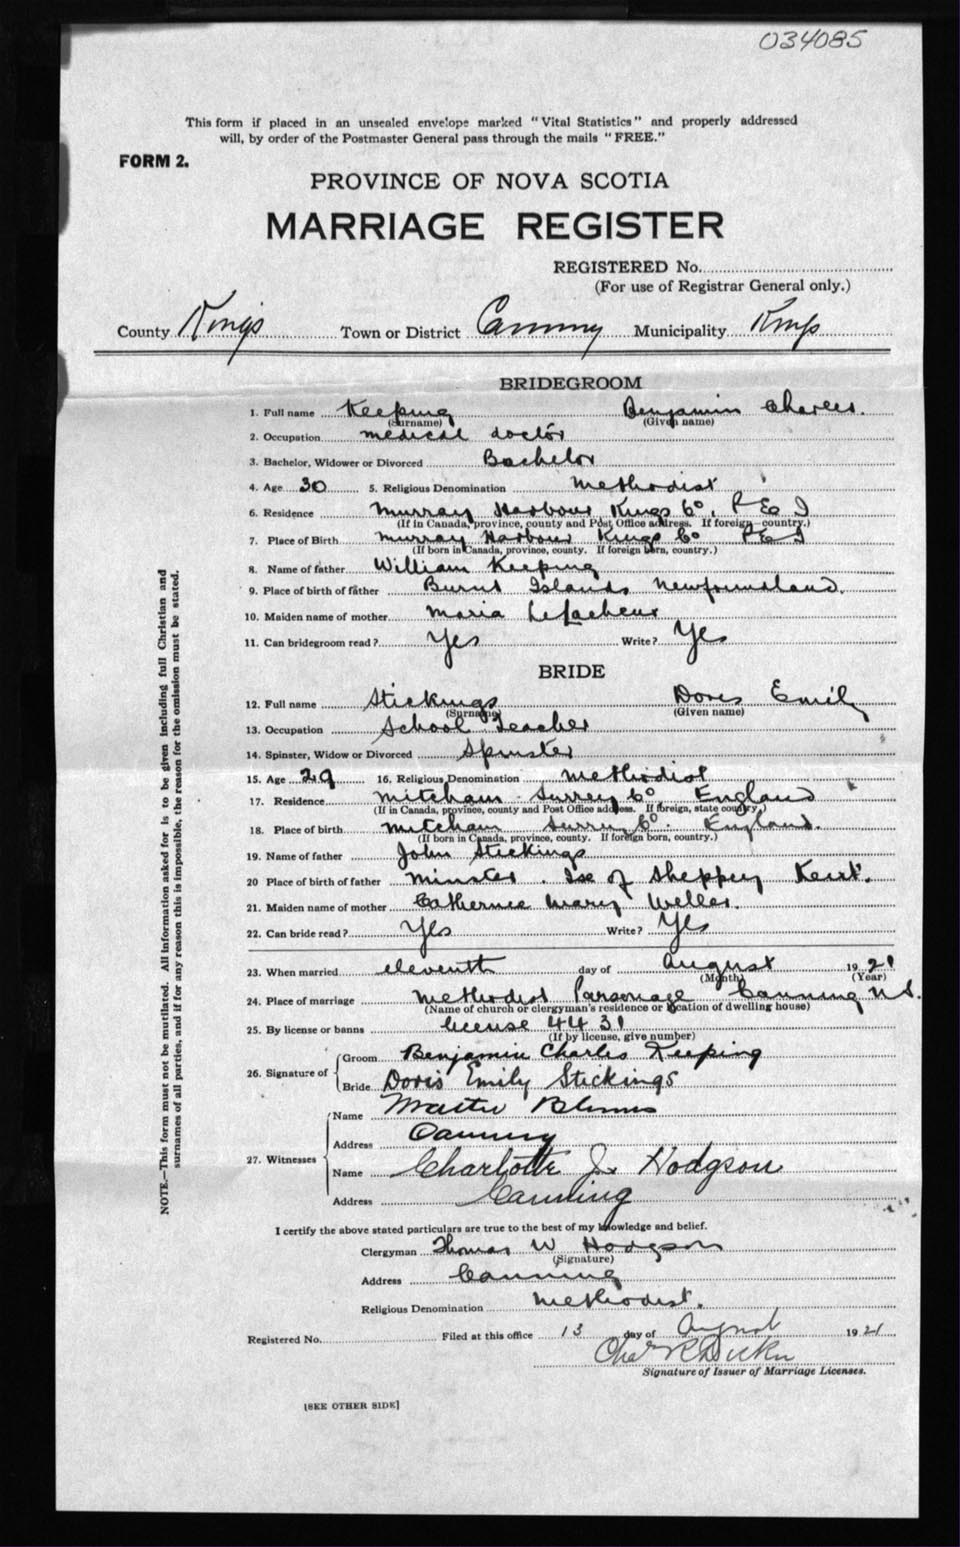 034085
This form if placed in an unsealed envelope marked "Vital Statistics" and properly addressed
will, by order of the Postmaster General pass through the mails "FREE."
FORM 2.
PROVINCE OF NOVA SCOTIA
MARRIAGE REGISTER
REGISTERED No.
(For use of Registrar General only.)
County Kings Town or District Canning Municipality Kings
BRIDEGROOM
1. Full name Keeping Benjamin Charles.
(Surname) (Given name)
2. Occupation medical doctor
3. Bachelor, Widower or Divorced Bachelor
4. Age 30 5. Religious Denomination Methodist
6. Residence Murray Harbour Kings Co. P E I
(If in Canada, province, county and Post Office address. If foreign—country.)
7. Place of Birth Murray Harbour Kings Co P E I
(If born in Canada, province, county. If foreign born, country.)
8. Name of father William Keeping
9. Place of birth of father Burnt Islands Newfoundland.
10. Maiden name of mother Maria LeLacheur
11. Can bridegroom read? Yes Write? Yes
BRIDE
12. Full name Stickings Doris Emily
(Surname) (Given name)
13. Occupation School Teacher
14. Spinster, Widow or Divorced Spinster
15. Age 29 16. Religious Denomination Methodist
17. Residence Mitcham Surrey Co England
(If in Canada, province, county and Post Office address. If foreign, state country.)
18. Place of birth Mitcham Surrey Co. England.
(If born in Canada, province, county. If foreign born, country.)
19. Name of father John Stickings
20 Place of birth of father Minster. Ise of Sheppey Kent.
21. Maiden name of mother Catherine Mary Weller.
22. Can bride read? Yes Write? Yes
23. When married eleventh day of August 1921
(Month) (Year)
24. Place of marriage Methodist Parsonage Canning N.S.
(Name of church or clergyman's residence or location of dwelling house)
25. By license or banns license 4431
(If by license, give number)
26. Signature of Groom Benjamin Charles Keeping
Bride Doris Emily Stickings
27. Witnesses Name Walter
Address Canning
Name Charlotte J. Hodgson
Address Canning
I certify the above stated particulars are true to the best of my knowledge and belief.
Clergyman Thomas W Hodgson
(Signature)
Address Canning
Religious Denomination Methodist.
Registered No. Filed at this office 13 day of August 1921
Chas R
Signature of Issuer of Marriage Licenses.
[SEE OTHER SIDE]
NOTE.—This form must not be mutilated. All information asked for is to be given including full Christian and
surnames of all parties, and if for any reason this is impossible, the reason for the omission must be stated.